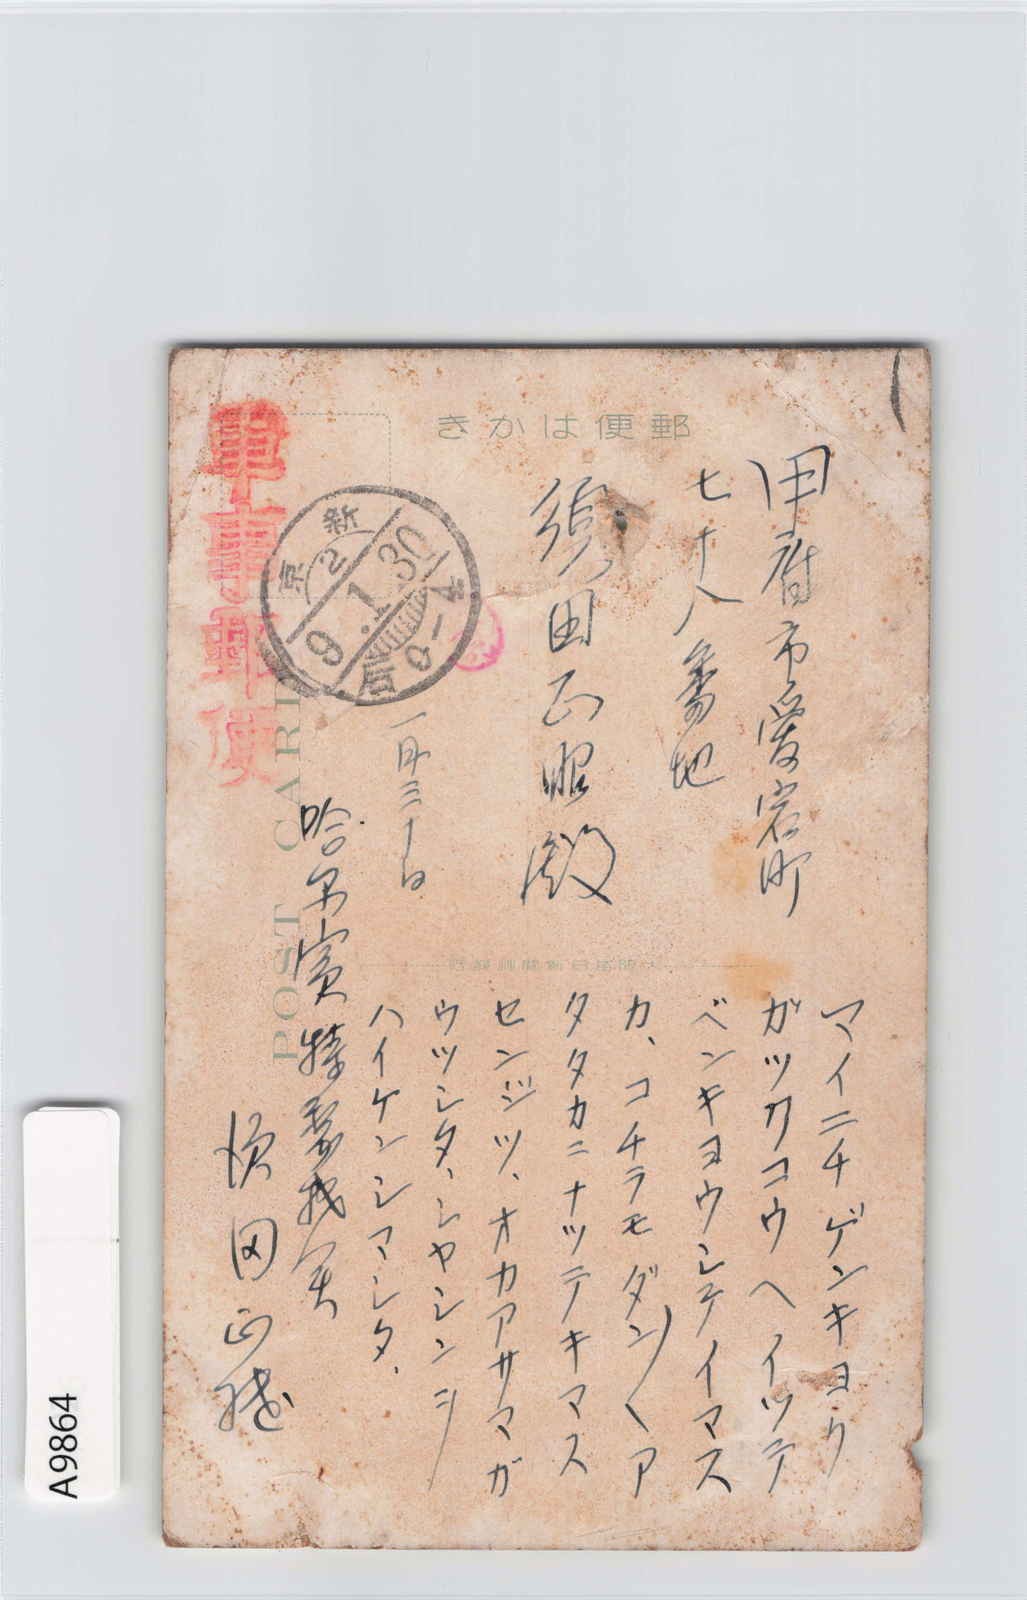 郵便はかき
甲府市愛宕町
七十八番地
須田正昭殿
マイニチゲンキヨク
ガツカコウヘイツテ
ベンキヨウシテイマス
カ、コチラモダン〱ア
タタカニナツテキマス
センジツ、オカアサマガ
ウツシタ、シヤシンヲ
ハイケンシマシタ、
一月三十日
哈尓賓特務機関
須田正
軍事郵便
新京
2
9.1.30
后0-4
POST CARD
A9864